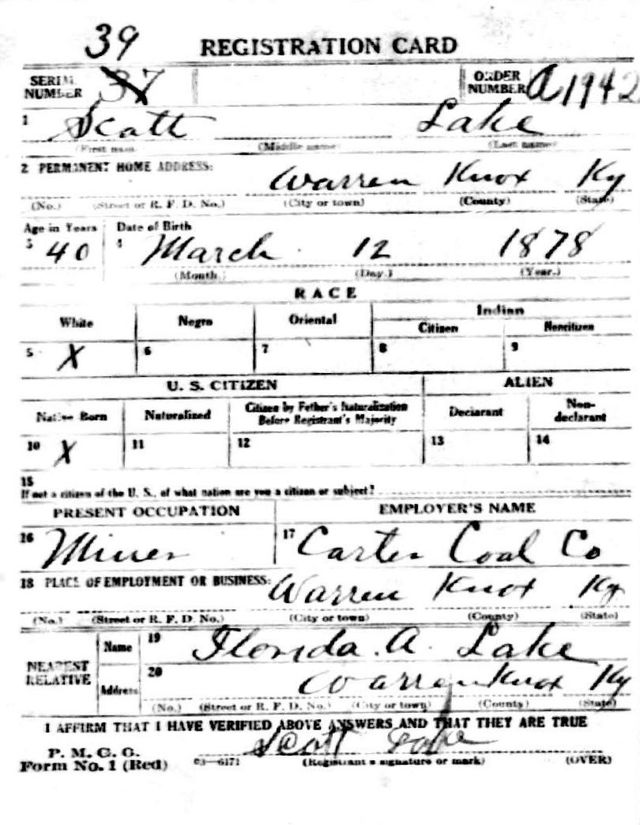 39
REGISTRATION CARD
SERIAL NUMBER 37 ORDER NUMBER A1942
1 Scott Lake
(First name) (Middle name) (Last name)
2 PERMANENT HOME ADDRESS:
Warren Knox Ky
(No.) (Street or R. F. D. No.) (City or town) (County) (State)
Age in Years Date of Birth
3 40 4 March 12 1878
(Month.) (Day.) (Year.)
RACE
White Negro Oriental Indian
Citizen Noncitizen
5 X 6 7 8 9
U. S. CITIZEN ALIEN
Native Born Naturalized Citizen by Father's Naturalization Before Registrant's Majority Declarant Non-declarant
10 X 11 12 13 14
15
If not a citizen of the U. S., of what nation are you a citizen or subject?
PRESENT OCCUPATION EMPLOYER'S NAME
16 Miner 17 Carter Coal Co
18 PLACE OF EMPLOYMENT OR BUSINESS:
Warren Knox Ky
(No.) (Street or R. F. D. No.) (City or town) (County) (State)
NEAREST RELATIVE Name 19 Florida. A. Lake
Address 20 Warren Knox Ky
(No.) (Street or R. F. D. No.) (City or town) (County) (State)
I AFFIRM THAT I HAVE VERIFIED ABOVE ANSWERS AND THAT THEY ARE TRUE
P. M. G. O.
Form No. 1 (Red) 03—6171 Scott Lake
(Registrant's signature or mark) (OVER)